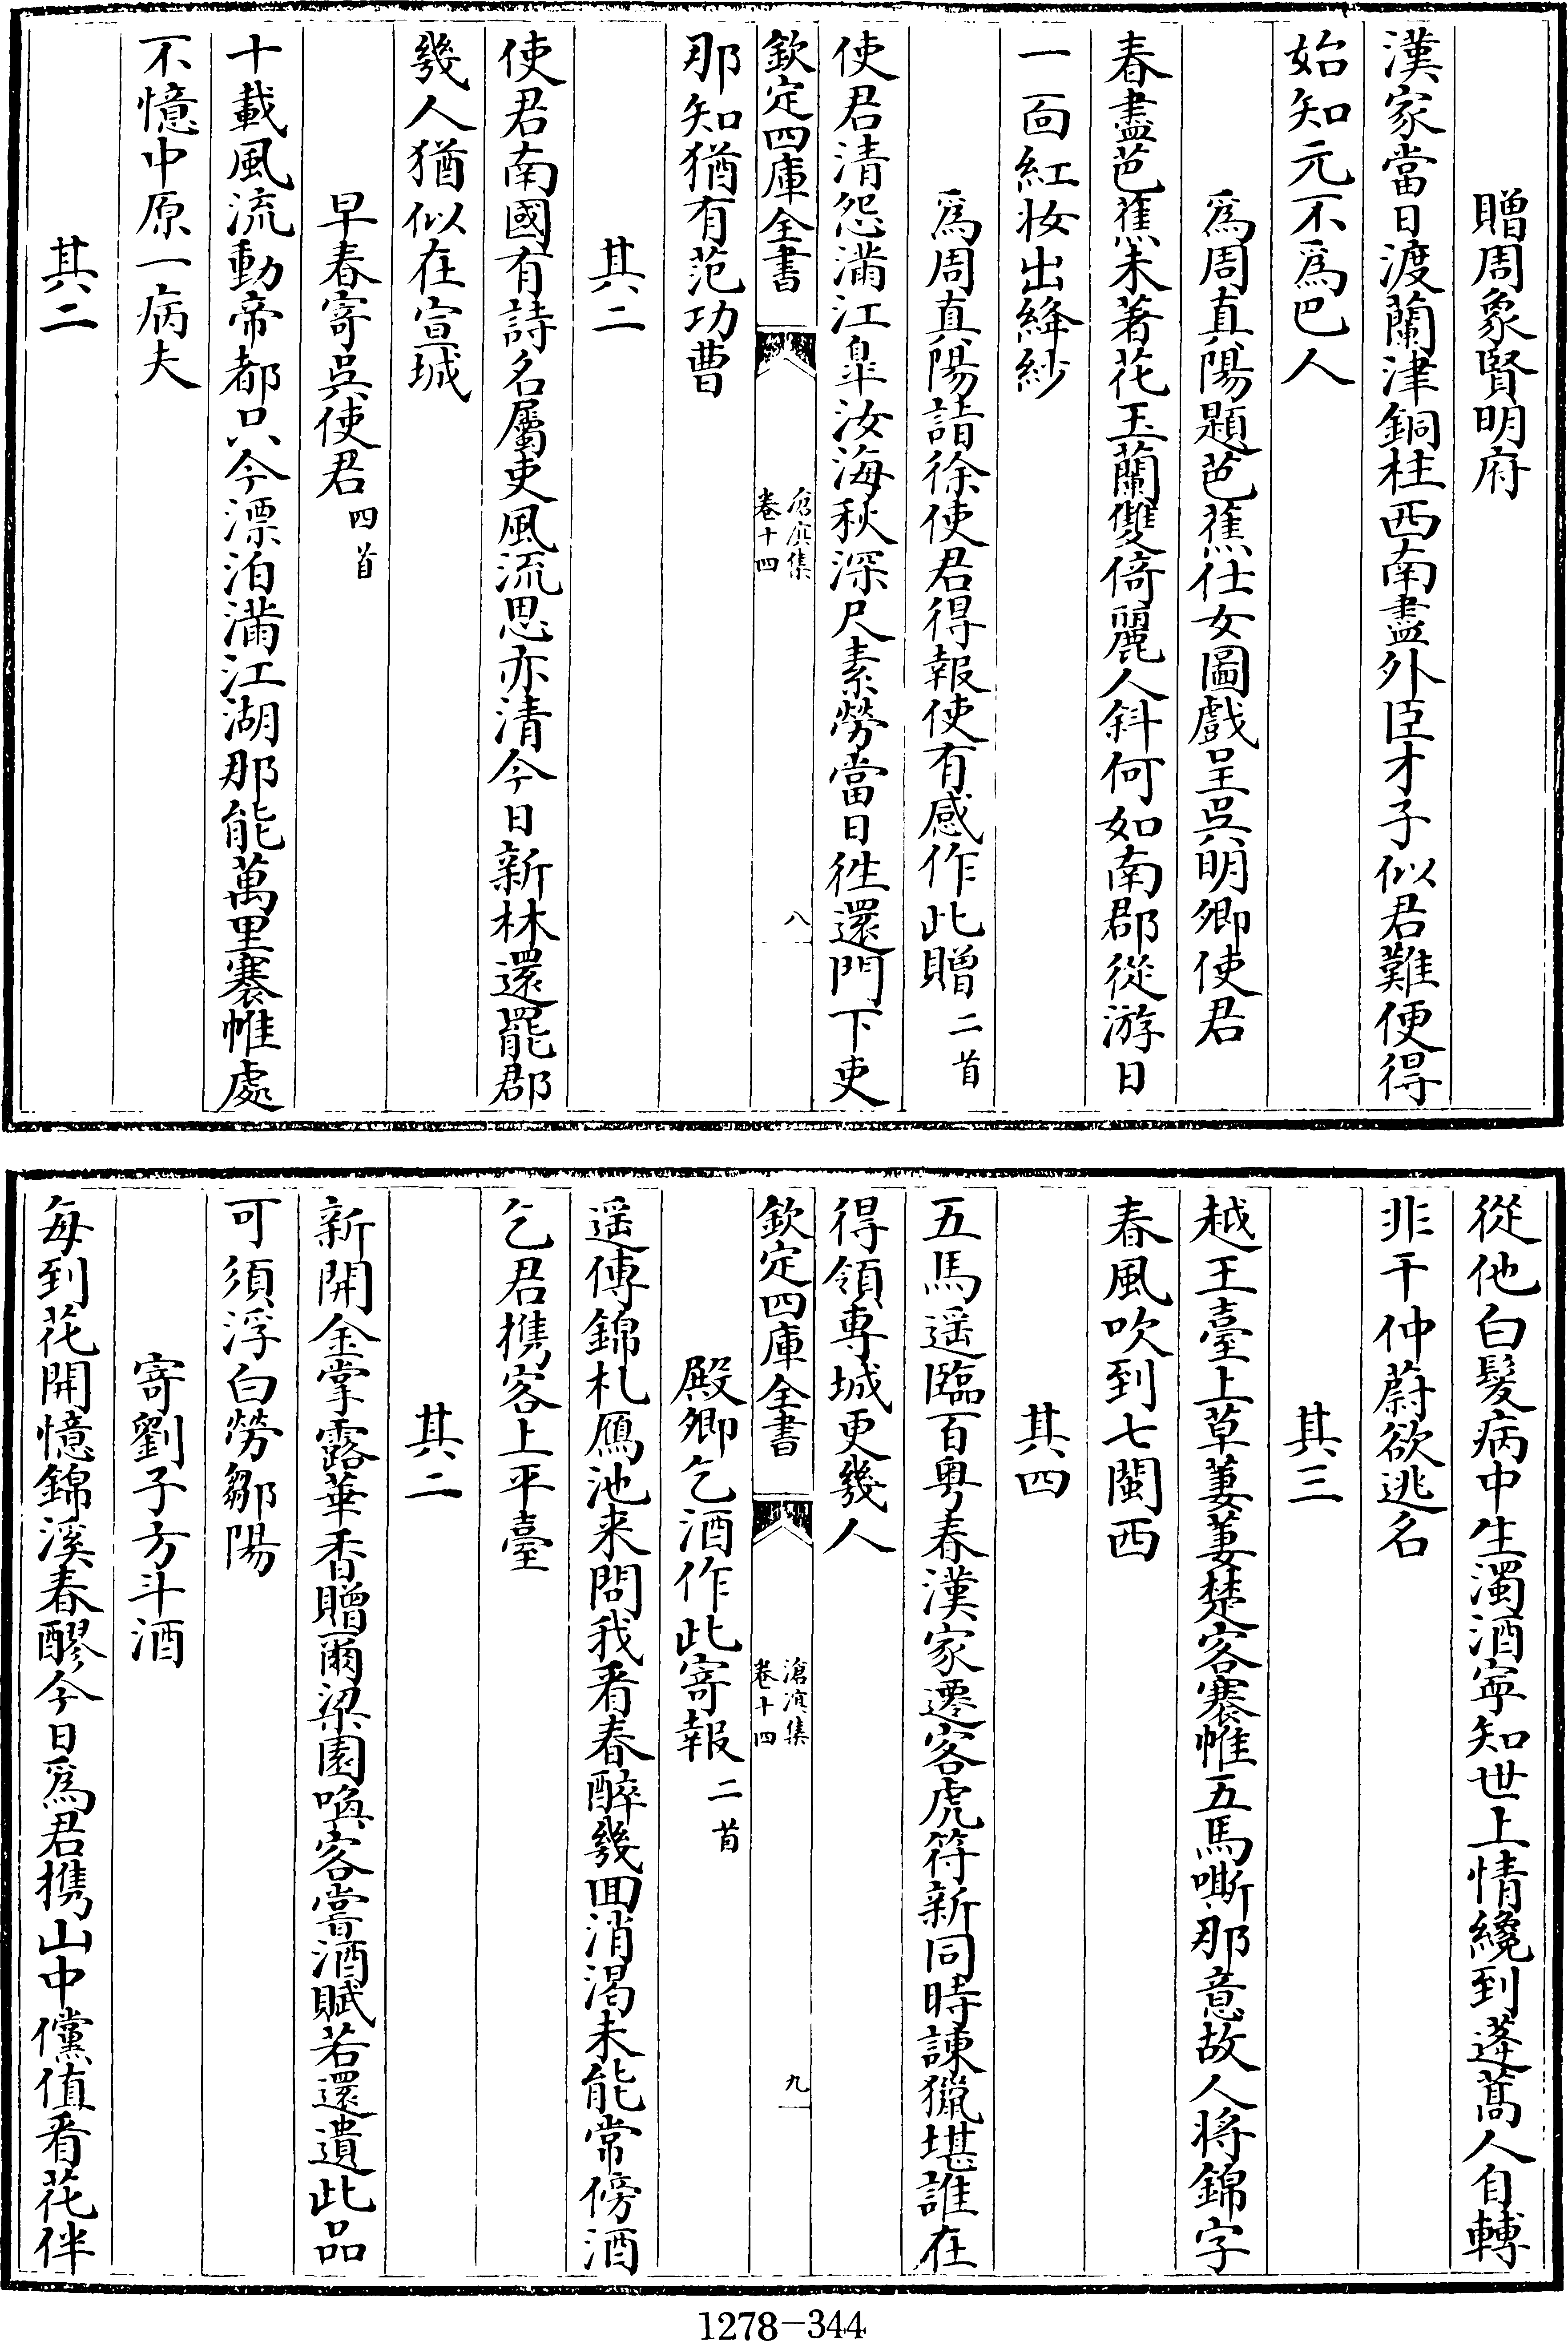 贈周象賢明府
漢家當日渡蘭津銅柱西南盡外臣才子似君難便得
始知元不爲巴人
爲周真陽題芭蕉仕女圖戲呈吳明卿使君
春盡芭蕉未著花玉蘭雙倚麗人斜何如南郡從游日
一面紅妝出絳紗
爲周真陽詣徐使君得報使有感作此贈二首
使君清怨滿江臯汝海秋深尺素勞當日徃還門下吏
欽定四庫全書
滄溟集
卷十四
八
那知猶有范功曹
其二
使君南國有詩名屬吏風流思亦清今日新林還罷郡
幾人猶似在宣城
早春寄吳使君四首
十載風流動帝都只今漂泊滿江湖那能萬里褰帷處
不憶中原一病夫
其二
從他白髮病中生濁酒寧知世上情纔到蓬蒿人自轉
非干仲蔚欲逃名
其三
越王臺上草萋萋楚客褰帷五馬嘶那意故人將錦字
春風吹到七閩西
其四
五馬遥臨百粤春漢家遷客虎符新同時諫獵堪誰在
得領專城更幾人
欽定四庫全書
滄溟集
卷十四
九
殿卿乞酒作此寄報二首
遥傳錦札鴈池来問我看春醉幾囬消渴未能常傍酒
乞君携客上平臺
其二
新開金掌露華香贈爾梁園喚客嘗酒賦若還遺此品
可須浮白勞鄒陽
寄劉子方斗酒
每到花開憶錦溪春醪今日爲君携山中儻值看花伴
1278-344